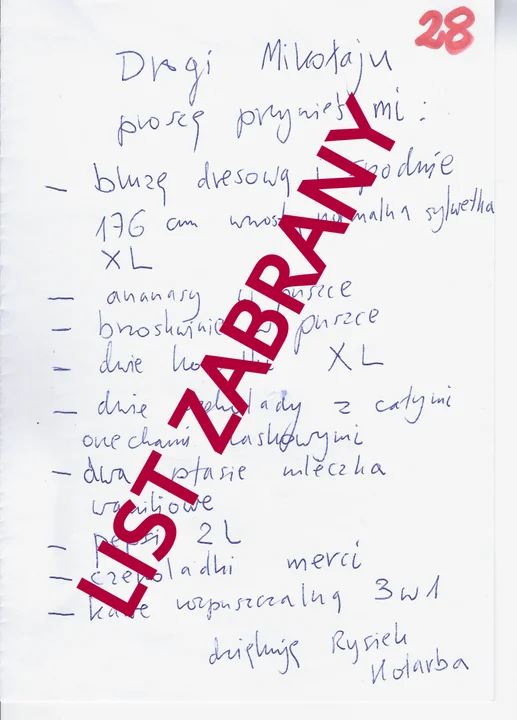 28
Drogi Mikołaju
proszę przynieś mi :
– bluzę dresową i spodnie
176 cm wzrost normalna sylwetka
XL
– ananasy w puszce
– brzoskwinie w puszce
– dwie XL
– dwie czekolady z całymi
orzechami laskowymi
– dwa ptasie mleczka
waniliowe
– pepsi 2 L
– czekoladki merci
– kawę rozpuszczalną 3 w 1
dziękuję Rysiek
Kotarba
LIST ZABRANY